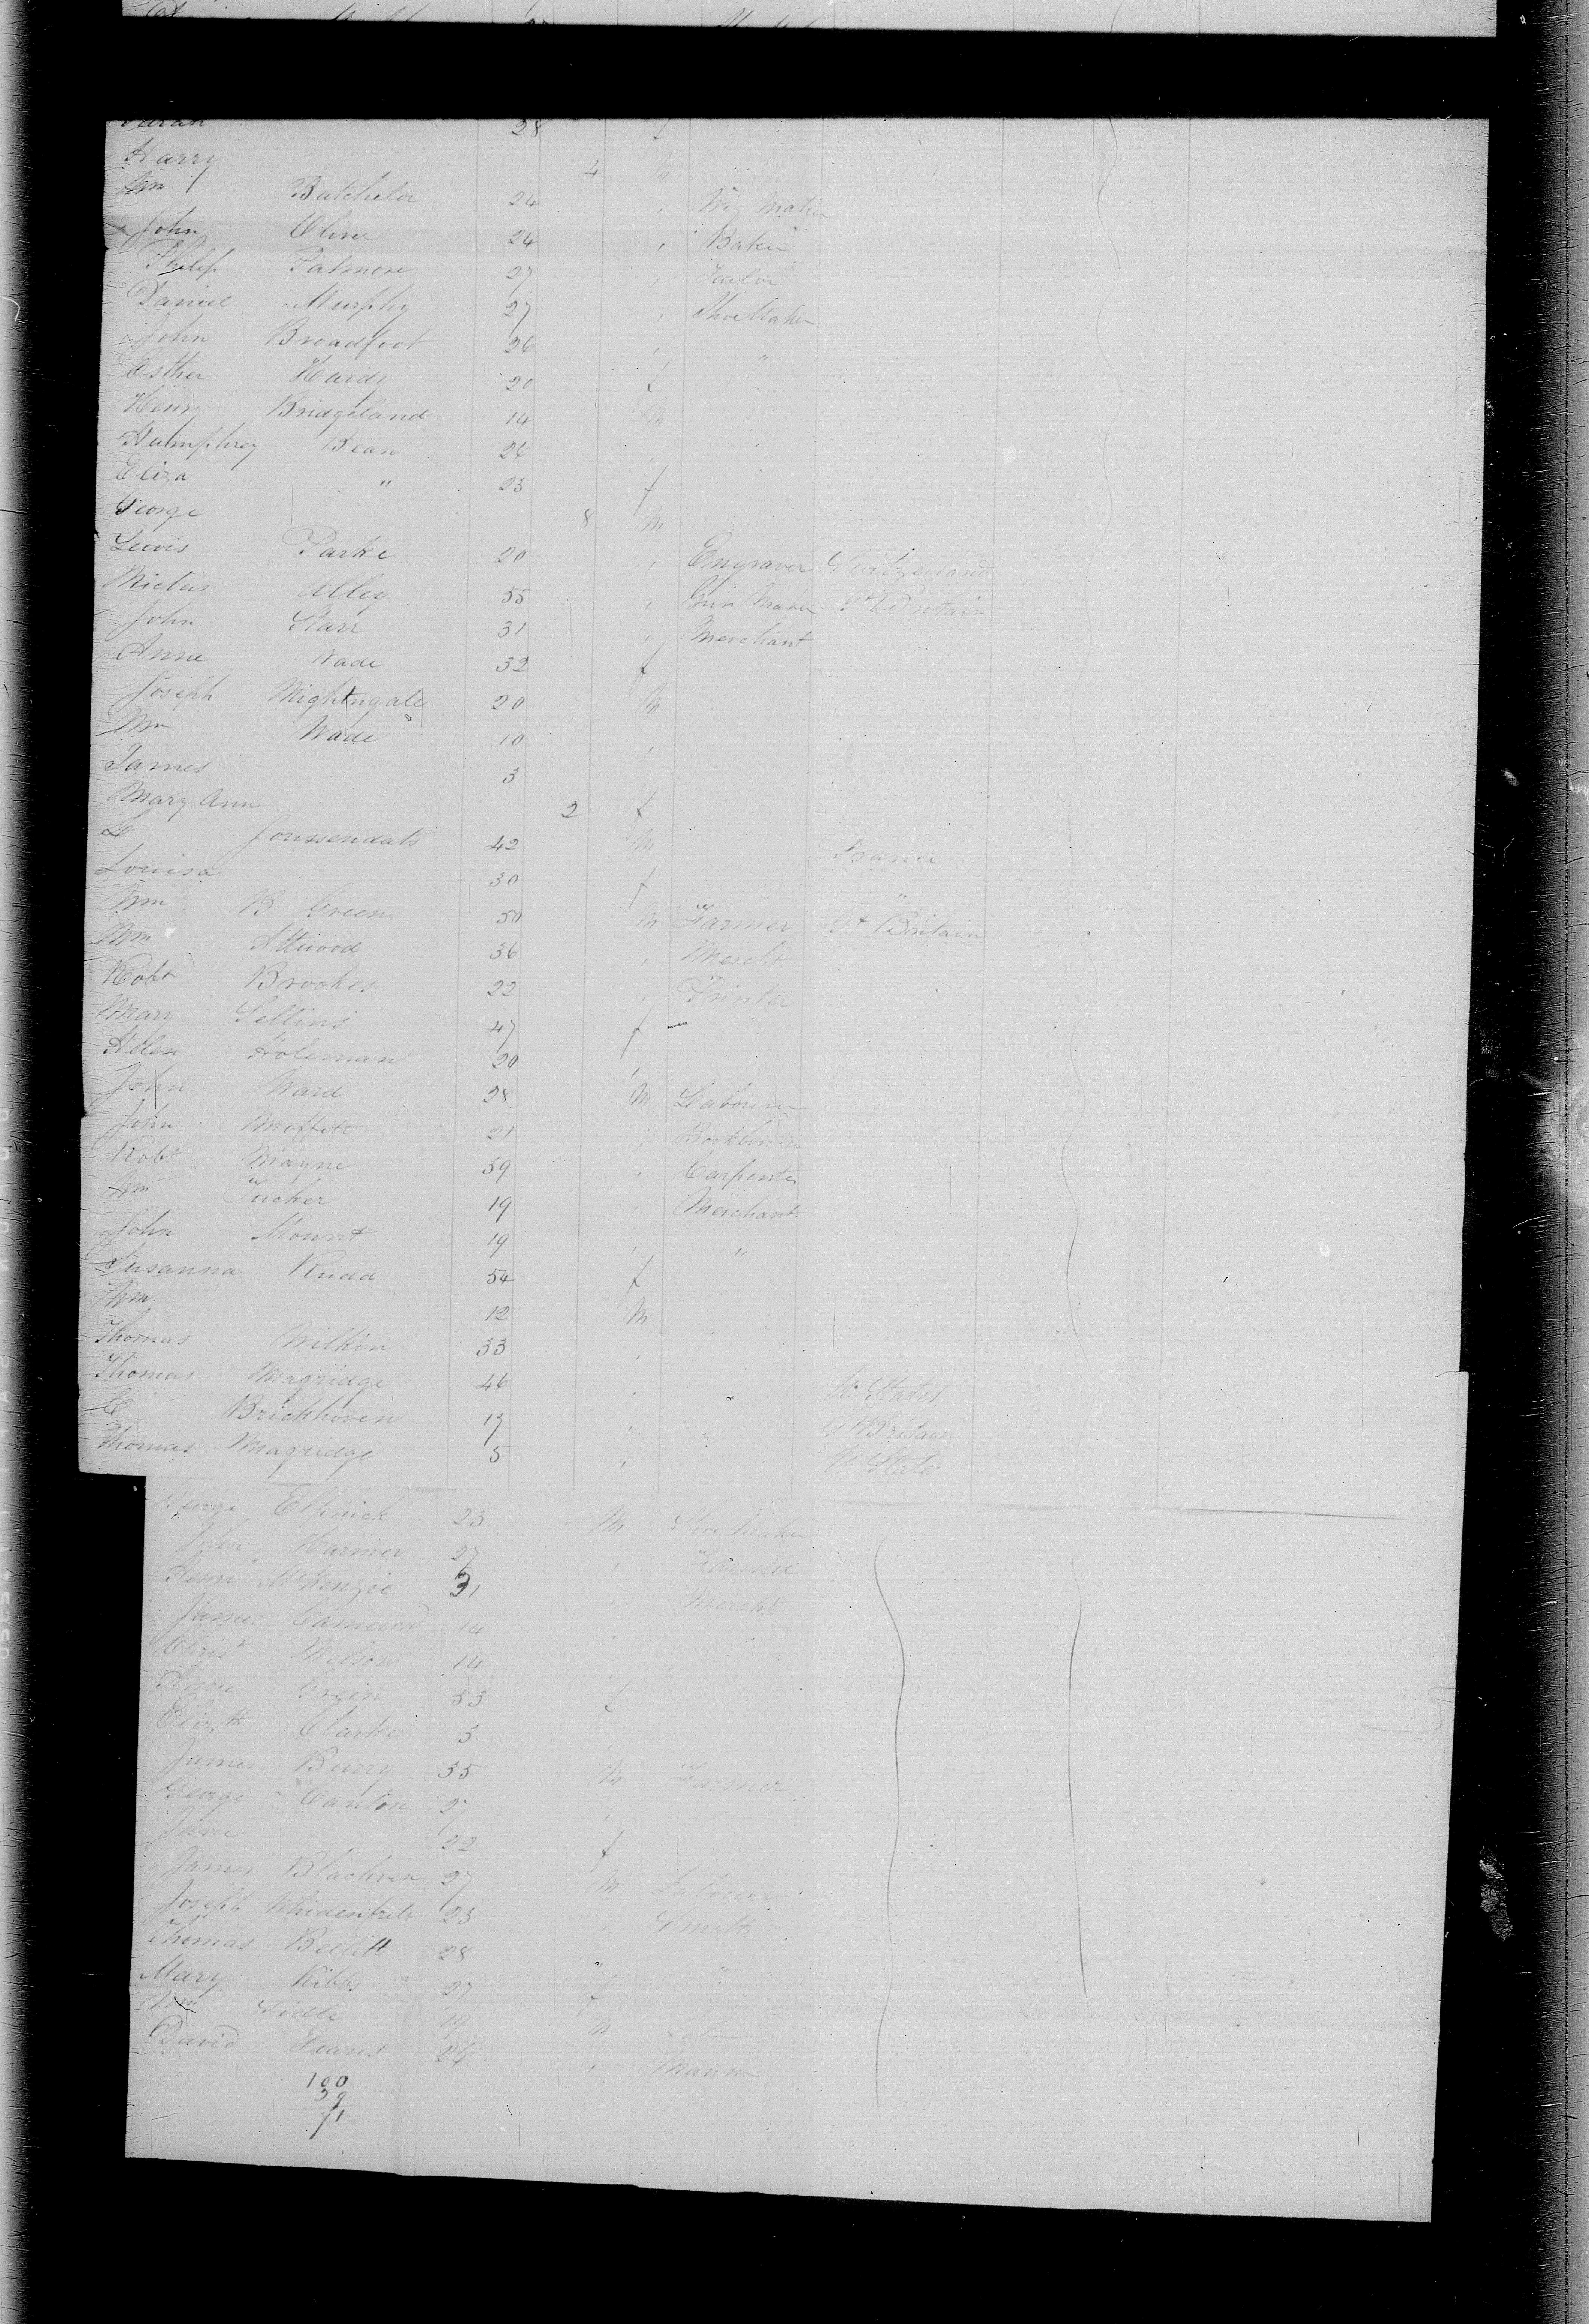 28 f
Harry 4 M
Wm Batchelor 24 , Wig Maker
John Olive 24 , Baker
Philip Palmore 27 , Tailor
Daniel Murphy 27 , Shoe Maker
John Broadfoot 26 , "
Esther Hardy 20 f
Henry Bridgeland 14 M
Humphrey Bean 26 ,
Eliza " 23 f
George 8 M
Lewis Parke 20 , Engraver Switzerland
Alley 55 , Gun Maker Gt Britain
John Starr 31 , Merchant
Anne Wade 32 f
Joseph Nightingale 20 M
Wm Wade 10 ,
James 3
Mary Ann 2 f
42 M France
Louisa 30 f "
Wm B Green 50 M Farmer Gt Britain
Wm Attwood 36 , Mercht
Robt Brookes 22 , Printer
Mary Sellins 47 f –
Helen Holeman 20 ,
John Ward 28 M Labourer
John Moffett 21 , Bookbinder
Robt Mayne 39 , Carpenter
Wm Tucker 19 , Merchant
John Mount 19 , "
Susanna Rudd 54 f
Wm 12 M
Thomas Wilkin 33 ,
Thomas Magridge 46 , " U States
Brickhoven 17 , " Gt Britain
Thomas Magridge 5 , U States
George Elphick 23 M Shoe Maker
John Harmer 27 , Farmer
Henry McKenzie 31 Mercht
James Cameron 14 ,
Christ Wilson 14 ,
Anne Green 53 f
Elizth Clarke 3 ,
James Burry 35 M Farmer
George Canton 27 ,
Jane 22 f
James 27 M Labourer
Joseph 23 , Smith
Thomas Bellitt 28 " "
Mary Kibbs 27 f
Wm Sidle 19 M Labourer
David Evans 26 , Mariner
100
29
71